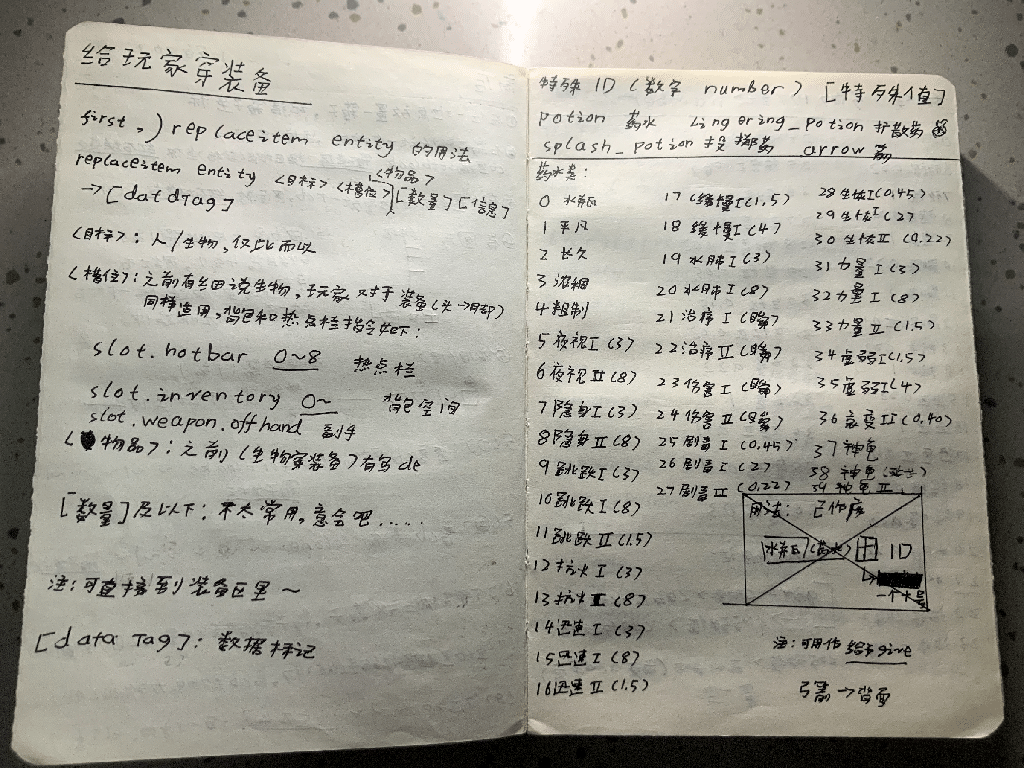 给玩家穿装备
first,) replaceitem entity 的用法
replaceitem entity <目标> <槽位> <物品> [数量] [信息]
→ [datdTag]
<目标>: 人/生物, 仅此而以
<槽位>: 之前有细说生物, 玩家对于装备(头→脚)
同样适用, 背包和热点栏指令如下:
slot.hotbar 0~8 热点栏
slot.inventory 0~ 背包空间
slot.weapon.offhand 副手
<物品>: 之前<生物穿装备>有写de
[数量]及以下: 不太常用, 意会吧......
注: 可直接到装备区里~
[data Tag]: 数据标记
特殊ID (数字 number) [特殊值]
potion 药水 lingering_potion 扩散药
splash_potion 投掷药 arrow 箭
药水表:
0 水瓶
1 平凡
2 长久
3 浓稠
4 粗制
5 夜视I (3)
6 夜视II (8)
7 隐身I (3)
8 隐身II (8)
9 跳跃I (3)
10 跳跃I (8)
11 跳跃II (1.5)
12 抗火I (3)
13 抗火II (8)
14 迅速I (3)
15 迅速I (8)
16 迅速II (1.5)
17 缓慢I (1.5)
18 缓慢I (4)
19 水肺I (3)
20 水肺I (8)
21 治疗I (瞬)
22 治疗II (瞬)
23 伤害I (瞬)
24 伤害II (瞬)
25 剧毒I (0.45)
26 剧毒I (2)
27 剧毒II (0.22)
28 生恢I (0.45)
29 生恢I (2)
30 生恢II (0.22)
31 力量I (3)
32 力量I (8)
33 力量II (1.5)
34 虚弱I (1.5)
35 虚弱I (4)
36 衰变II (0.40)
37 神龟
38 神龟
39 神龟II
用法: 已作废
水瓶/(药水) 田 ID
一个大号
注: 可用作 给予give
弓箭→背面